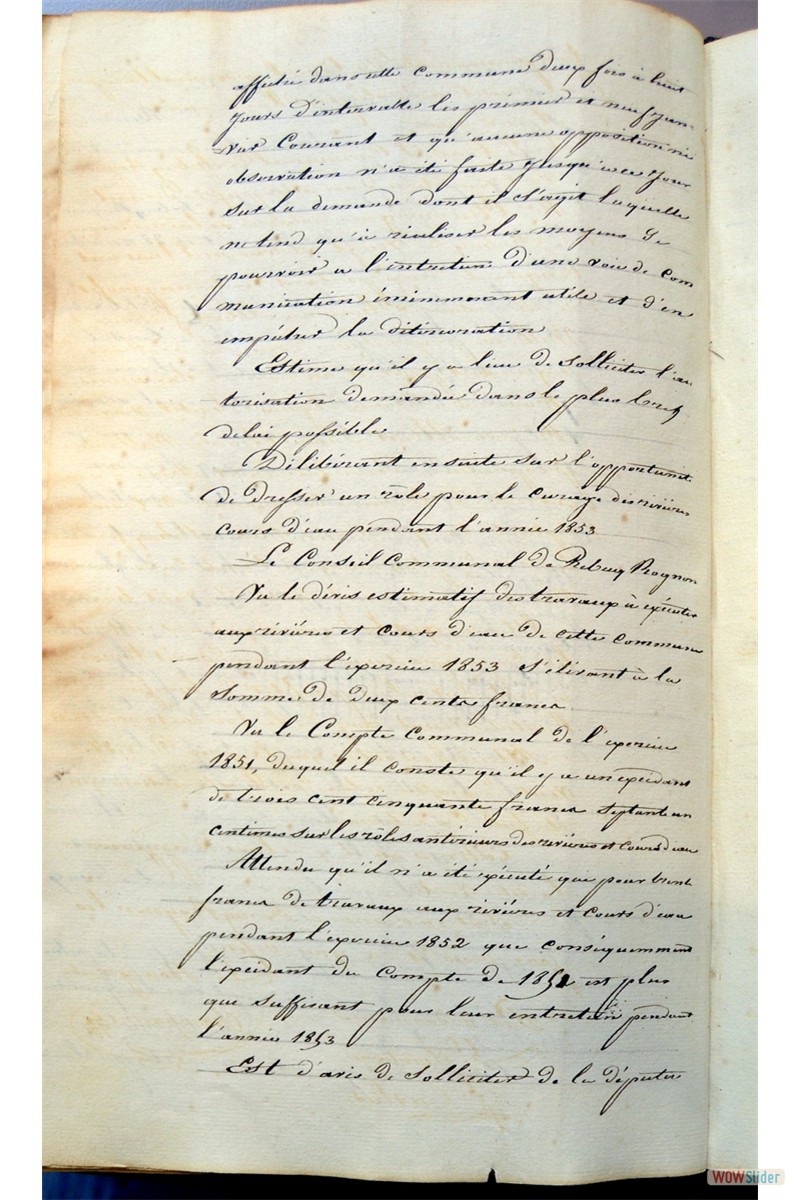 affiché dans cette commune deux fois à huit
jours d'intervalle les premier et neuf jan-
vier courant et qu'aucune opposition ni
observation n'a été faite jusqu'à ce jour
sur la demande dont il s'agit laquelle
ne tend qu'à réaliser les moyens de
pourvoir a l'entretien d'une voie de com
munication éminemment utile et d'en
empécher la déterioration
Estime qu'il y a lieu de solliciter l'au
torisation demandée dans le plus bref
delai possible
Délibérant ensuite sur l'opportunité
de dresser un rôle pour le curage des rivières
cours d'eau pendant l'année 1853
Le Conseil Communal de Rebecq Rognon
Vu le dévis estimatif des travaux à exécuter
aux rivières et cours d'eau de cette commune
pendant l'exercice 1853 s'élevant à la
somme de deux cents francs
Vu le Compte Communal de l'exercice
1851, duquel il conste qu'il y a un excédant
de trois cent cinquante francs septante un
centimes sur les rôles antérieurs des rivières et cours d'eau
Attendu qu'il n'a été exécuté que pour trente
francs de travaux aux rivières et cours d'eau
pendant l'exercice 1852 que conséquemment
l'excédant du compte de 1851 est plus
que suffisant pour leur entretien pendant
l'année 1853
Est d'avis de solliciter de la députa
WOWSlider